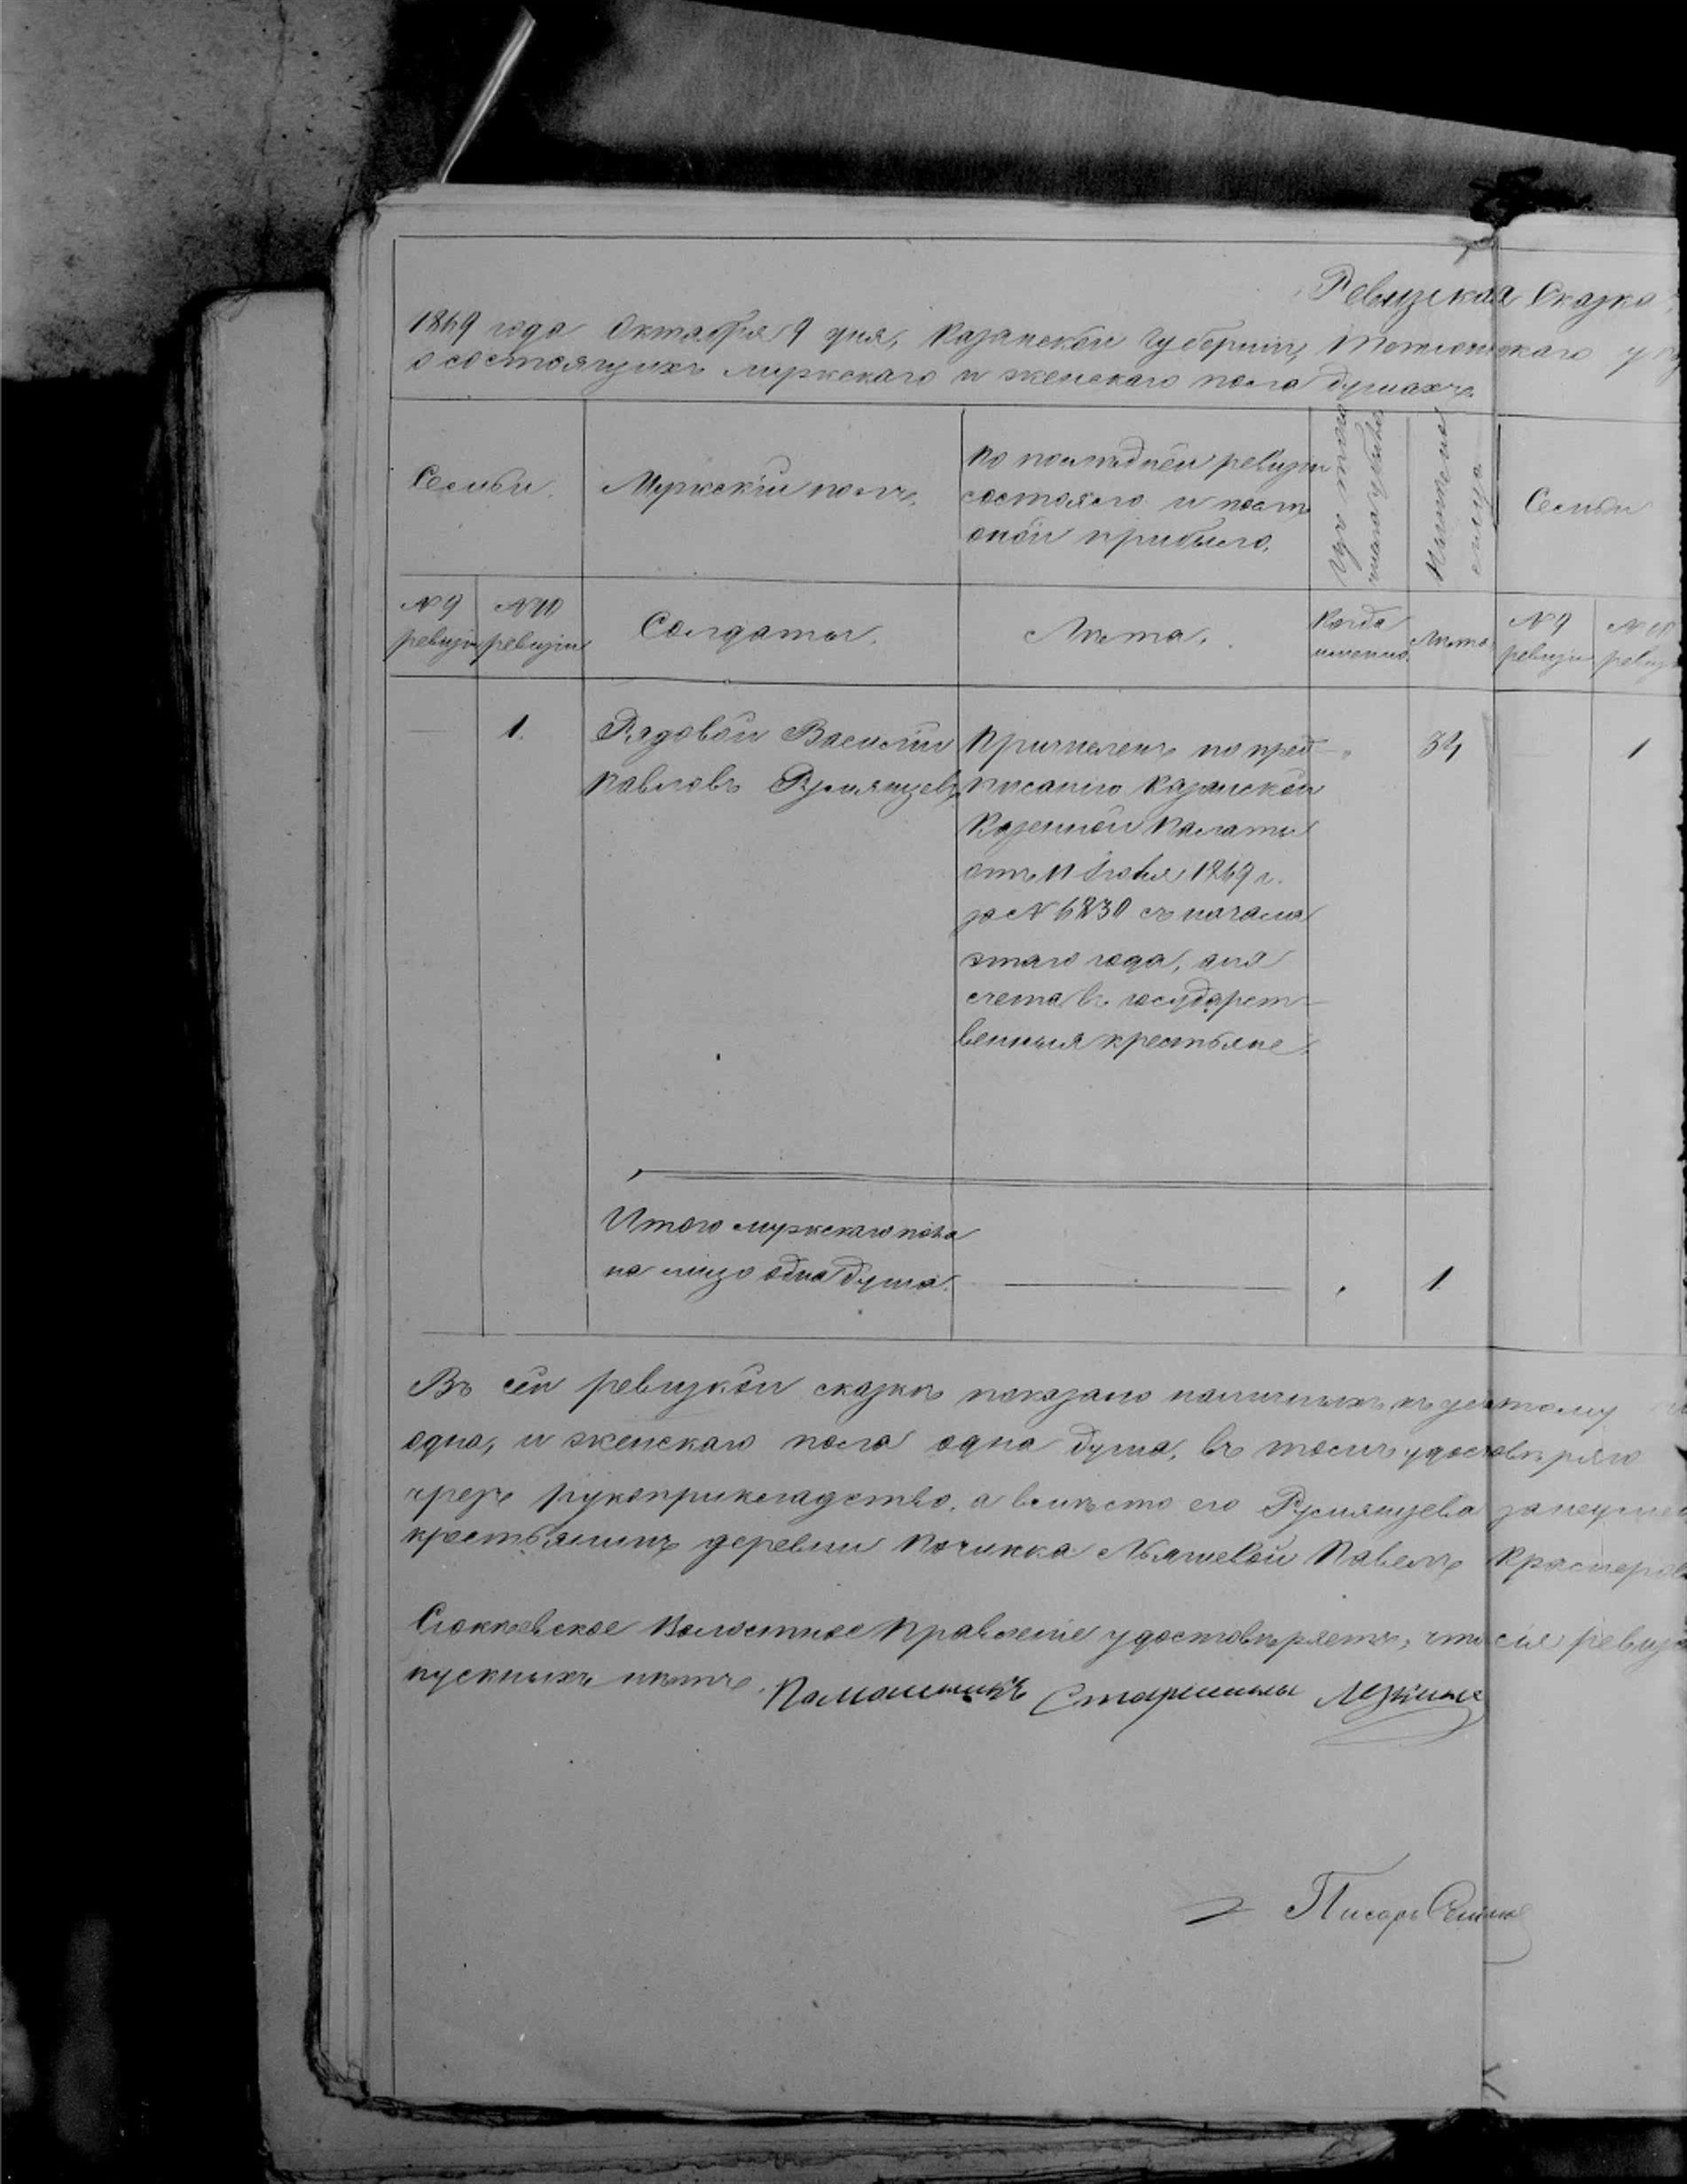 Ревизская Сказка,
1869 года Октября 9 дня, Казанской Губернии, Тетюшскаго у
о состоящихъ мужскаго и женскаго пола душахъ.
Семьи.
Мужскій полъ.
По послѣдней ревизіи
состояло и послѣ
оной прибыло.
Изъ того
числа убыло
Нынѣ на
лицо
Семьи
№ 9
ревизіи
№ 10
ревизіи
Солдаты.
Лѣта.
Когда
именно.
Лѣта
№ 9
ревизіи
№ 10
— 1.
Рядовой Василій
Павловъ Румянцевъ
Причисленъ по пред-
писанію Казанской
Казенной Палаты
отъ 11 1869 г.
за № 6830 съ начала
этаго года, для
счета въ государст-
венныя крестьяне.
34
1
Итого мужскаго пола
на лицо одна душа.
1
Въ сей ревизкой сказкѣ показано наличныхъ
одна, и женскаго пола одна душа, въ томъ удостовѣряю
чрезъ рукоприкладство, а вмѣсто его Румянцева
крестьянинъ деревни Починка Льяшевой Павелъ
Сюкѣевское Волостное Правленіе удостовѣряетъ, что сія
пускныхъ нѣтъ. Памошникъ Старшины
Писарь